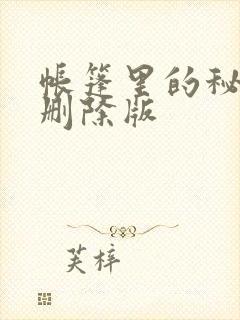 帐篷里的秘
删除版
芙梓